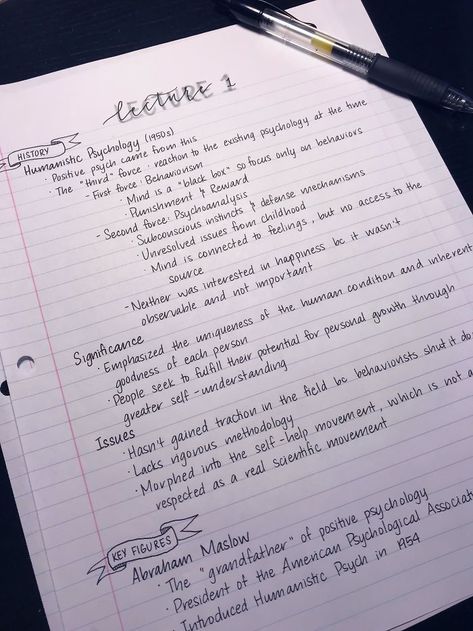 lecture 1
LECTURE 1
HISTORY
Humanistic Psychology (1950s)
· Positive psych came from this
· The "third" force : reaction to the existing psychology at the time
- First force: Behaviorism
· Mind is a "black box" so focus only on behaviors
· Punishment & Reward
- Second force: Psychoanalysis
· Subconscious instincts & defense mechanisms
· Unresolved issues from childhood
· Mind is connected to feelings, but no access to the
source
- Neither was interested in happiness bc it wasn't
observable and not important
Significance
· Emphasized the uniqueness of the human condition and inherent
goodness of each person
· People seek to fulfill their potential for personal growth through
greater self-understanding
Issues
· Hasn't gained traction in the field bc behaviorists shut it do
· Lacks rigorous methodology
· Morphed into the self-help movement, which is not a
respected as a real scientific movement
KEY FIGURES
Abraham Maslow
· The "grandfather" of positive psychology
· President of the American Psychological Associat
· Introduced Humanistic Psych in 1954